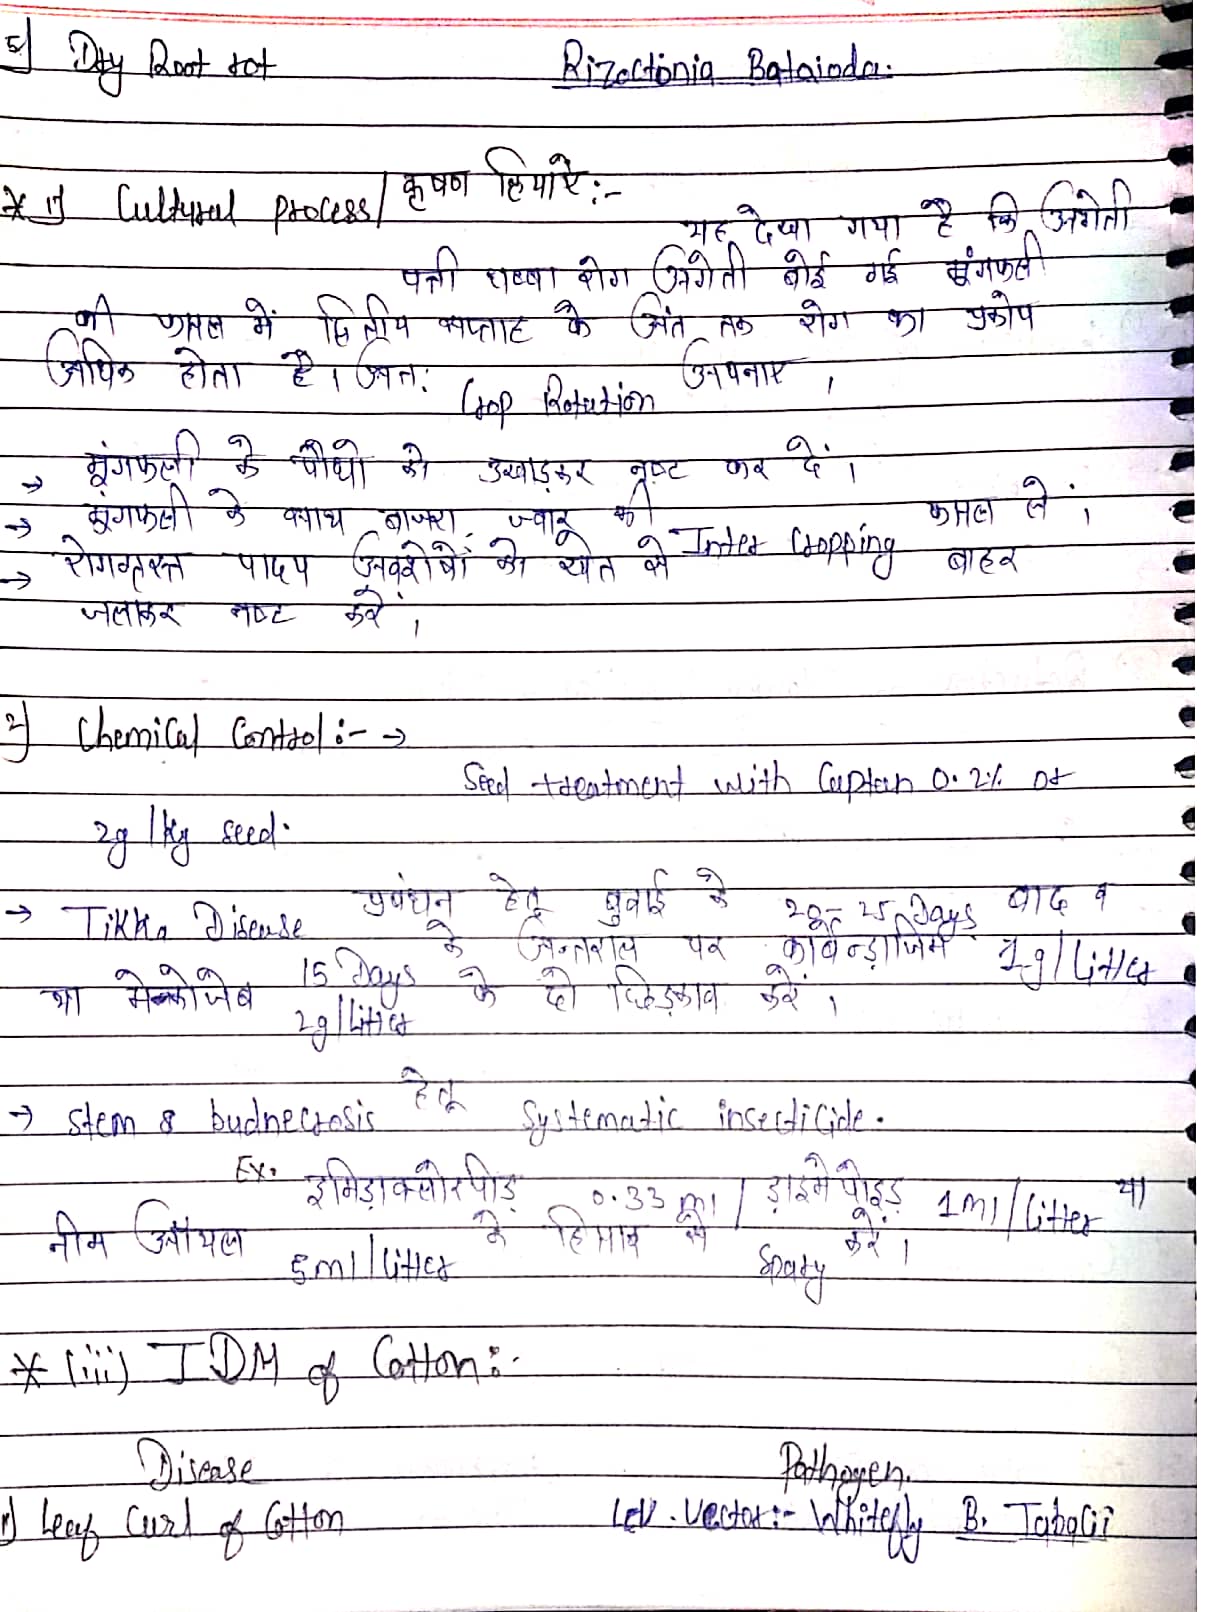 5) Dry Root rot Rizoctonia Bataioda.
* 1) Cultural process/ कृषण क्रियाऐं:-
यह देखा गया है कि अगेती
पत्ती धब्बा रोग अगेती बोई गई मूंगफली
की फसल में द्वितीय सप्ताह के अंत तक रोग का प्रकोप
अधिक होता है। अत: Crop Rotation अपनाए।
→ मूंगफली के पौधो को उखाड़कर नष्ट कर दें।
→ मूंगफली के साथ बाजरा, ज्वार की Inter Cropping फसल लें।
→ रोगग्रस्त पादप अवशेषों को खेत से बाहर
जलाकर नष्ट करें।
2) Chemical Control:- →
Seed treatment with Captan 0.2% or
2g/kg seed.
→ Tikka Disease प्रबंधन हेतू बुवाई के 28-25 Days बाद व
15 Days के अन्तराल पर कार्बेन्ड़ाजिम 1g/Litter
या मेन्कोजेब 2g/Litter के दो छिड़काव करें।
→ Stem & budnecrosis हेतू Systematic insecticide.
Ex. इमिड़ाक्लोरपीड़ 0.33 ml/ ड़ाइमेपोइड़ 1ml/Litter या
नीम ऑयल 5ml/Litter के हिसाब से Spary करें।
* (iii) IDM of Cotton:-
Disease Pathogen.
1) Leaf Curl of Cotton Lcv. Vector:- Whitefly B. Tabacii